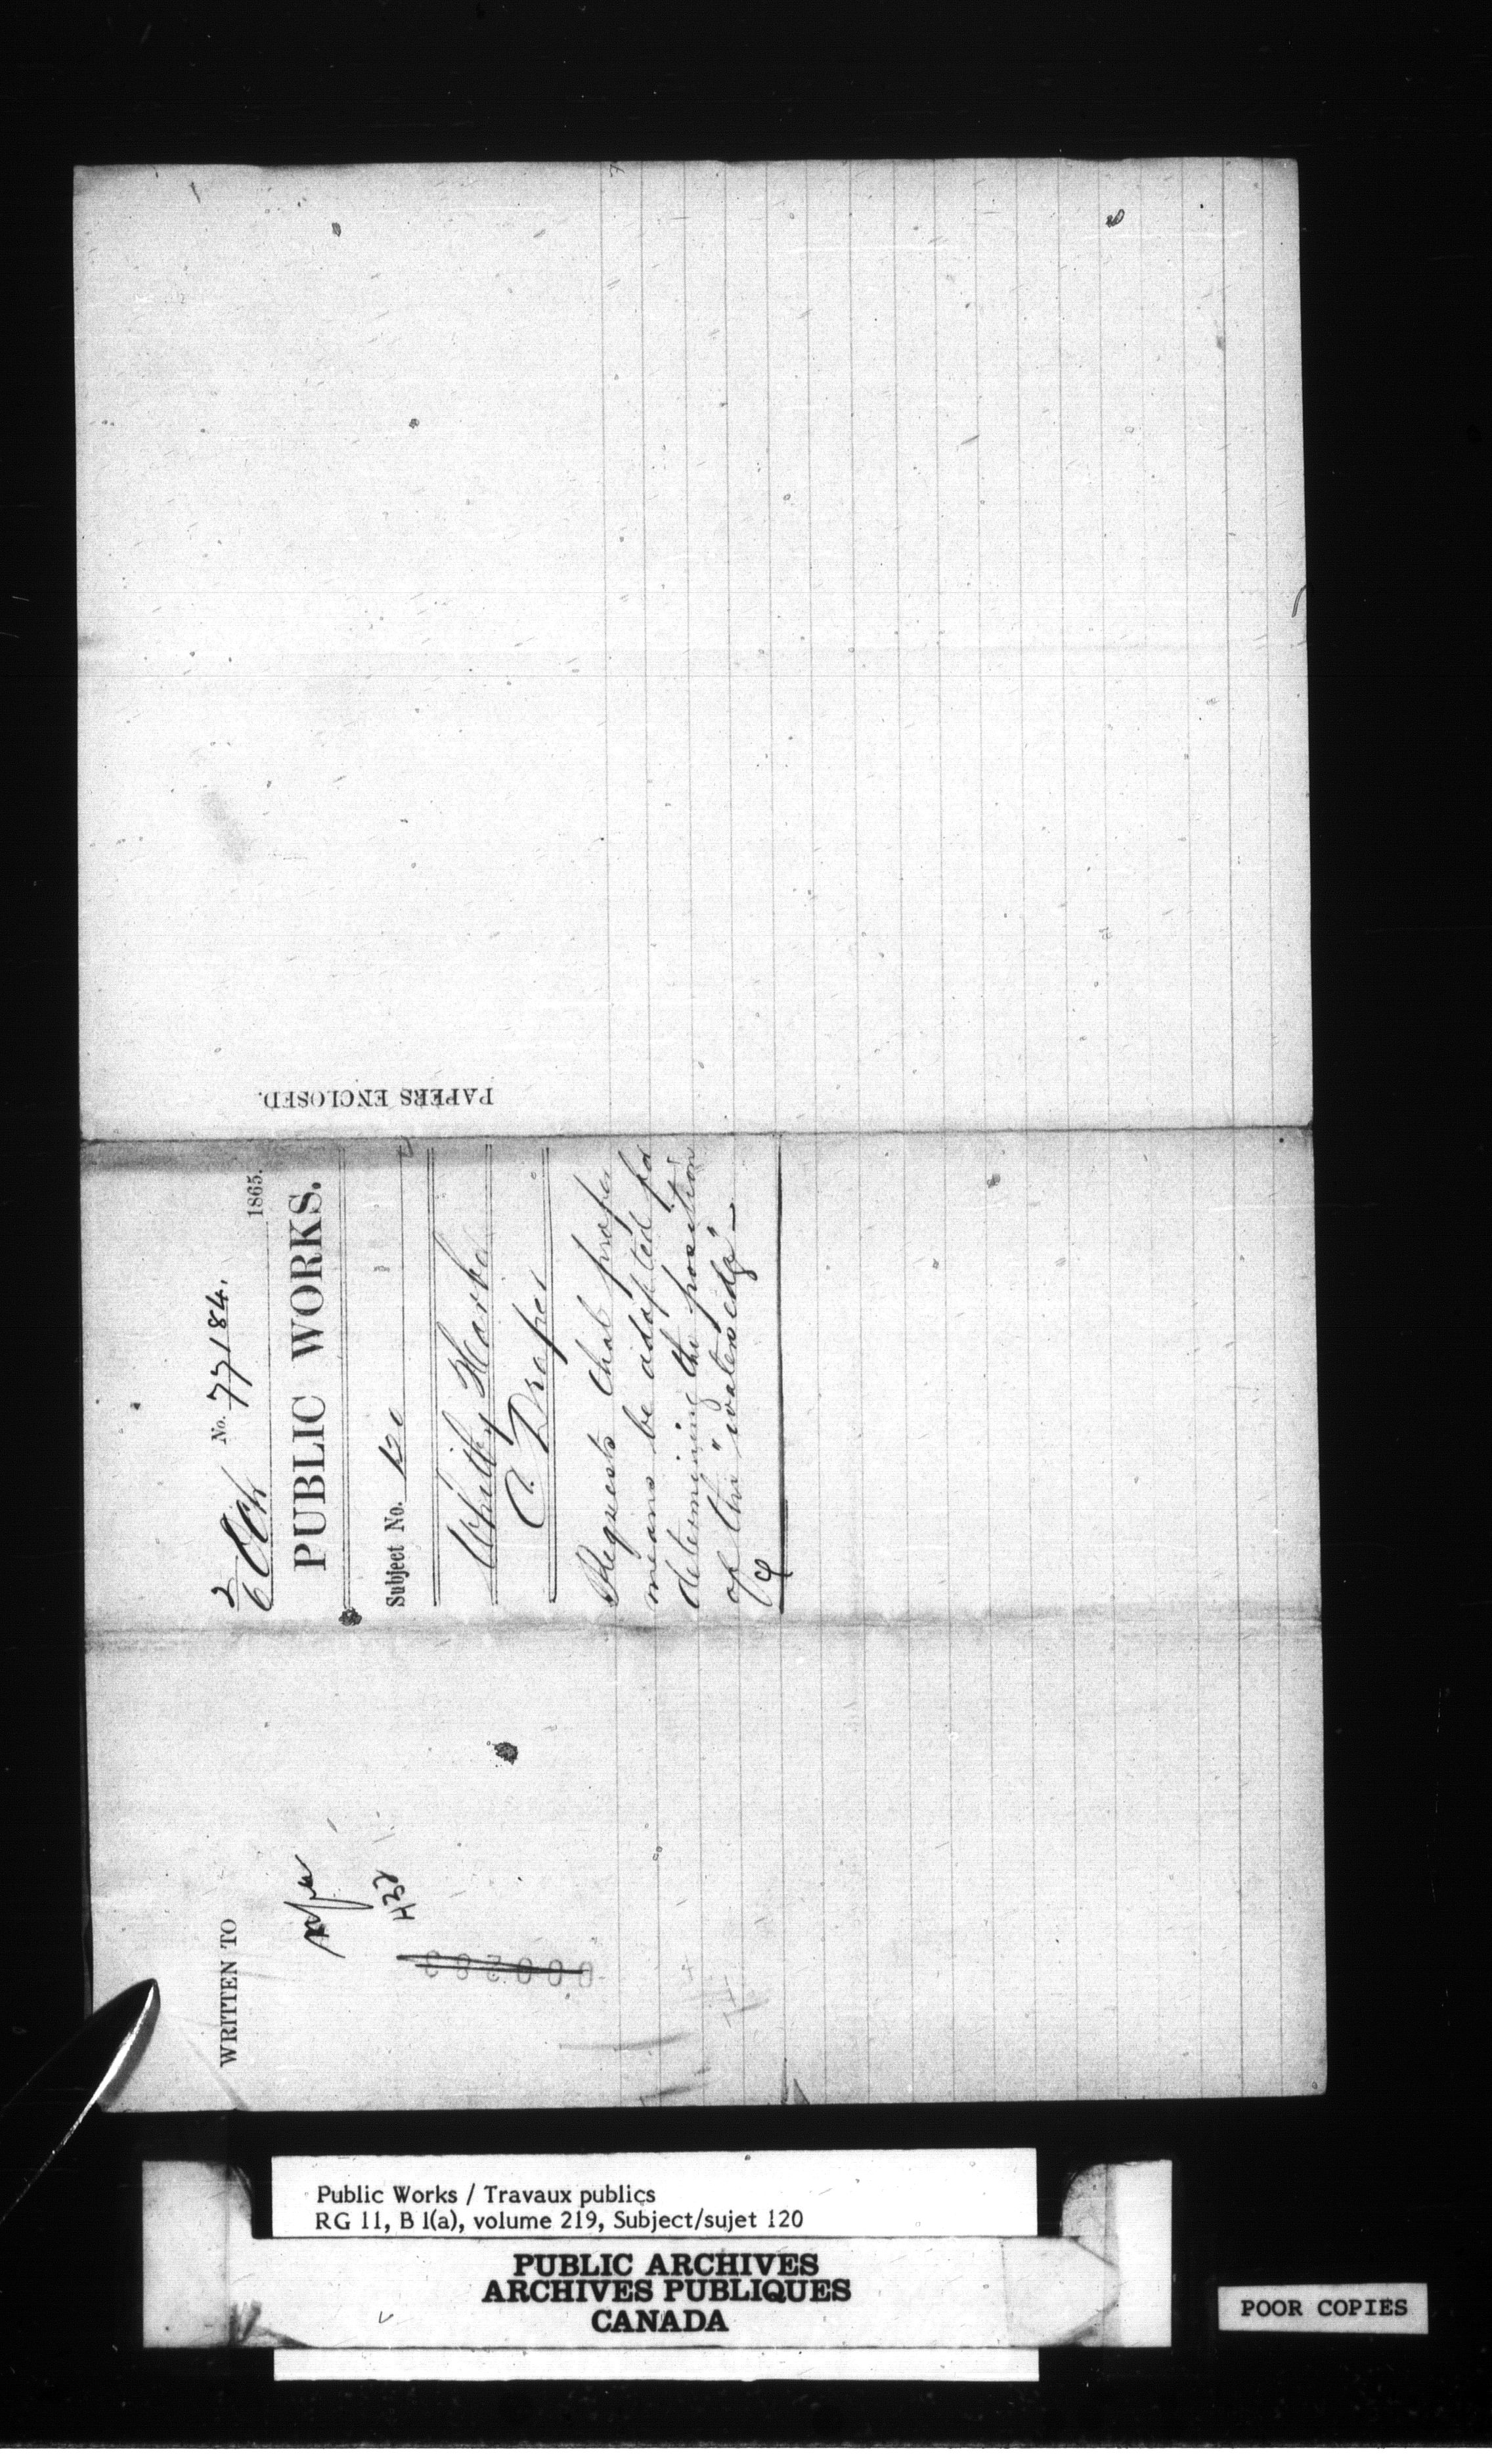 PAPERS ENCLOSED.
2/6 Oct No. 77184. 1865.
PUBLIC WORKS.
Subject No. 120
Whitby Harbor
C. Draper
Requests that proper
means be adopted for
determining the position
of the "waters edge" –
WRITTEN TO
000283
Public Works / Travaux publics
RG 11, B 1(a), volume 219, Subject/sujet 120
PUBLIC ARCHIVES
ARCHIVES PUBLIQUES
CANADA
POOR COPIES